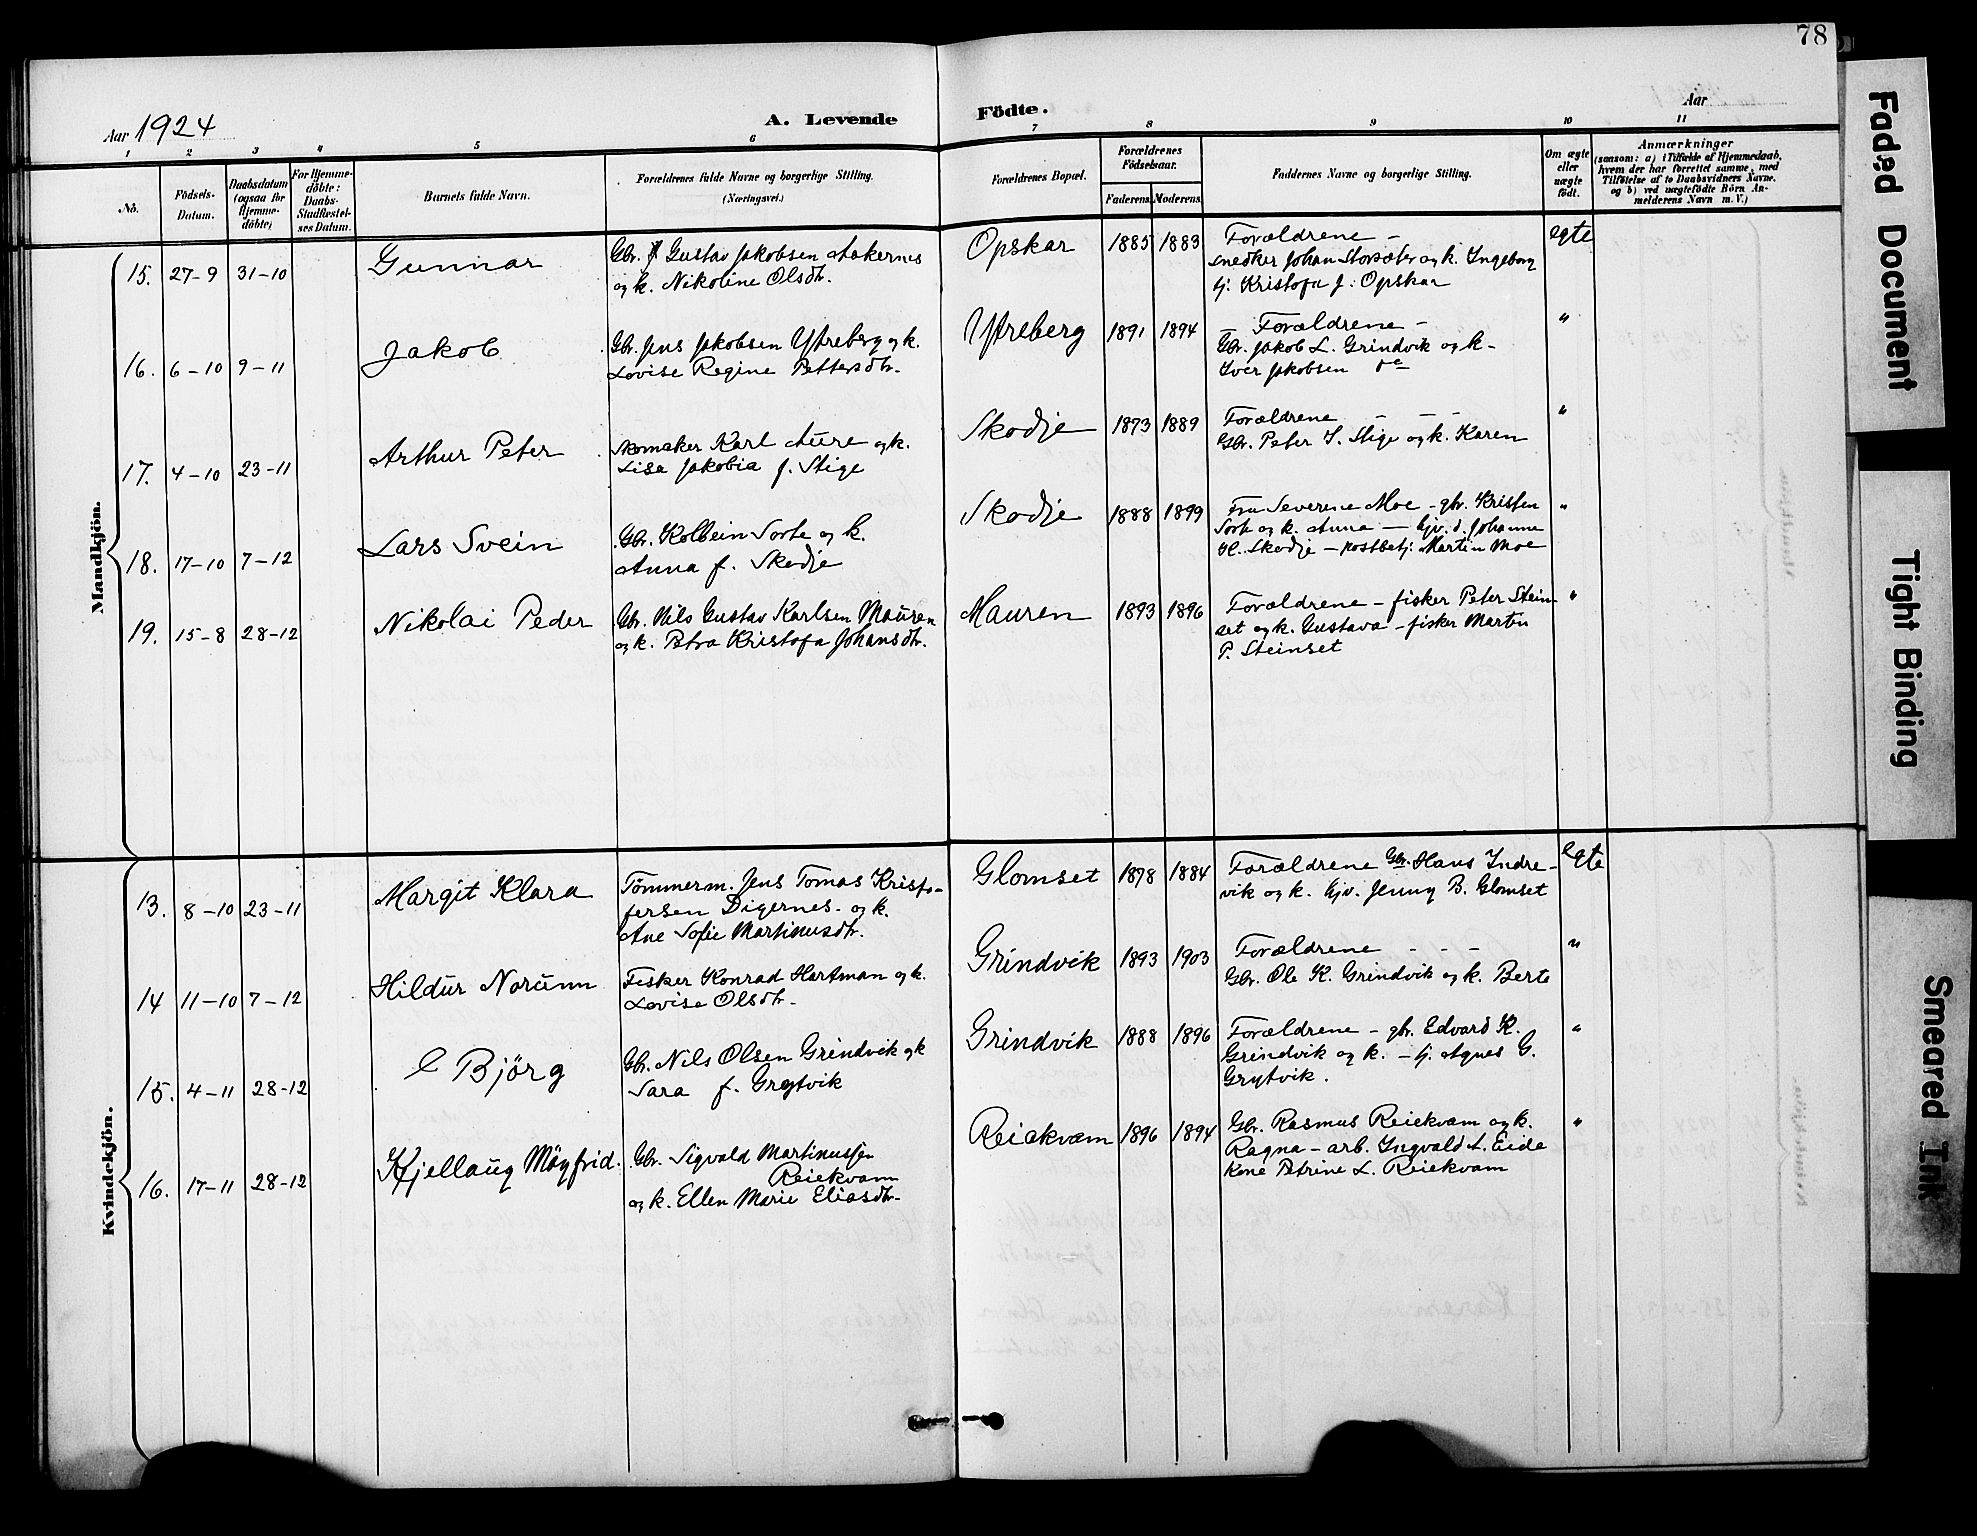 78
Aar 1924
A. Levende
Födte.
Aar
1 2 3 4 5 6 7 8 9 10 11
No.
Födsels-Datum.
Daabsdatum (ogsaa for Hjemme-döbte)
For Hjemme-döbte: Daabs-Stadfæstel-ses Datum.
Barnets fulde Navn.
Forældrenes fulde Navne og borgerlige Stilling.
(Næringsvei.)
Forældrenes Bopæl.
Forældrenes Födselsaar.
Faderens Moderens
Faddernes Navne og borgerlige Stilling.
Om ægte eller uægte födt.
Anmærkninger
(saasom: a) i Tilfælde af Hjemmedaab,
hvem der har forrettet samme, med
Tilföielse af to Daabsvidners Navne,
og b) ved uægtefödte Börn An-
melderens Navn m. V.)
Mandkjön.
15. 27-9 31-10 Gunnar
Gbr. Gustav Jakobsen Aakernes
og k. Nikoline Olsdtr.
Opskar 1885 1883
Forældrene -
snedker Johan Storsæter og k. Ingeborg
tj. Kristofa J. Opskar
egte
16. 6-10 9-11 Jakob
Gbr. Jens Jakobsen Ytreberg og k.
Lovise Regine Pettersdtr.
Ytreberg 1891 1894
- Forældrene -
Gbr. Jakob L. Grindvik og k -
Iver Jakobsen
"
17. 4-10 23-11 Arthur Peter
Skomaker Karl Aure og k.
Lisa Jakobia f. Stige
Skodje 1873 1889
Forældrene - - -
Gbr. Peter J. Stige og k. Karen
"
18. 17-10 7-12 Lars Svein
Gbr. Kolbein Sorte og k.
Anna f. Skodje
Skodje 1888 1899
Fru Severine Moe - gbr. Kristen
Sorte og k. Anna - hjv. d. Johanne
H. Skodje - postbetj. Martin Moe
"
19. 15-8 28-12 Nikolai Peder
Gbr. Nils Gustav Karlsen Mauren
og k. Petra Kristofa Johansdtr.
Mauren 1893 1896
Forældrene - fisker Peter Stein-
set og k. Gustava - fisker Martin
P. Steinset
"
Kvindekjön.
13. 8-10 23-11 Margit Klara
Tömmerm. Jens Tomas Kristo-
fersen Digernes. og k.
Ane Sofie Martinusdtr.
Glomset 1878 1884
Forældrene Gbr. Hans Indre-
vik og k. hjv. Jenny B. Glomset
egte
14 11-10 7-12 Hildur Norunn
Fisker Konrad Hartman og k.
Lovise Olsdtr.
Grindvik 1893 1903
Forældrene - - -
Gbr. Ole K. Grindvik og k. Berte
"
15. 4-11 28-12 Björg
Gbr. Nils Olsen Grindvik og k
Sara f. Grytvik
Grindvik 1888 1896
Forældrene - gbr. Edvard K.
Grindvik og k. - tj. Agnes G.
Grytvik.
"
16. 17-11 28-12 Kjellaug Möyfrid.
Gbr. Sigvald Martinussen
Reiekvam
og k. Ellen Marie Eliasdtr.
Reiekvam 1896 1894
Gbr. Rasmus Reiekvam og k.
Ragna - arb. Ingvald L. Eide
Kone Petrine L. Reiekvam
"
Faded Document
Tight Binding
Smeared Ink